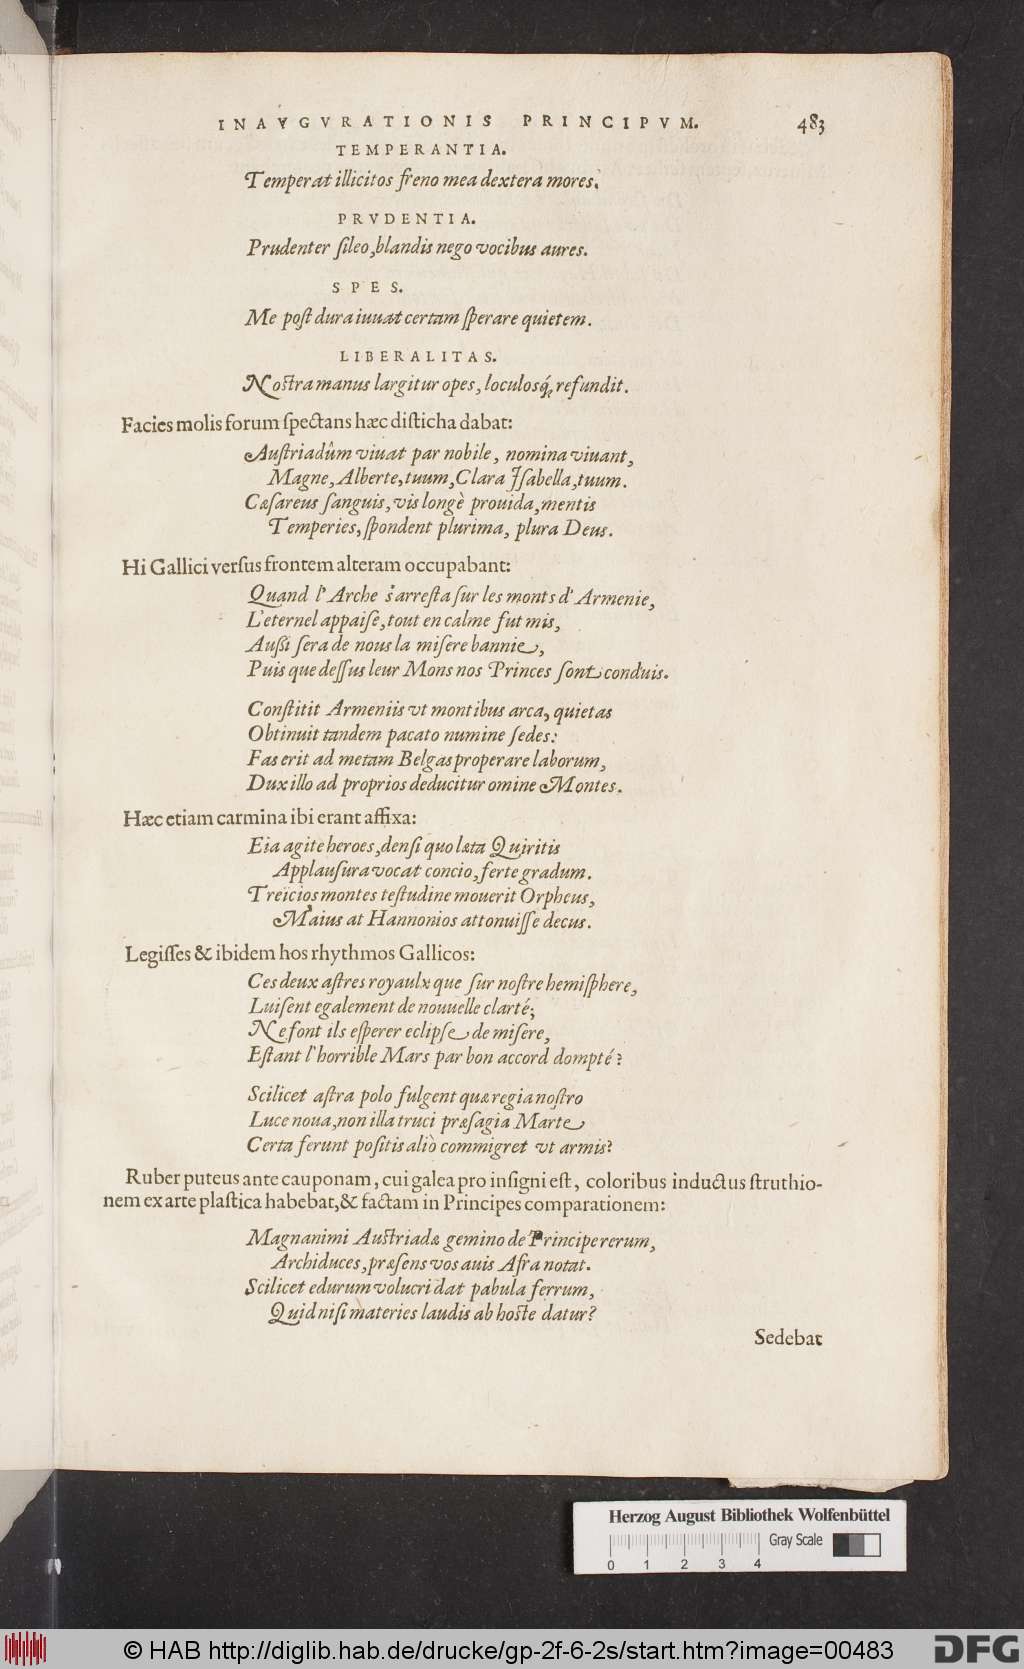 INAVGVRATIONIS PRINCIPVM. 483
TEMPERANTIA.
Temperat illicitos freno mea dextera mores.
PRVDENTIA.
Prudenter ſileo, blandis nego vocibus aures.
SPES.
Me poſt dura iuuat certam ſperare quietem.
LIBERALITAS.
Noſtra manus largitur opes, loculosq́; refundit.
Facies molis forum ſpectans hæc diſticha dabat:
Auſtriadûm viuat par nobile, nomina viuant,
Magne, Alberte, tuum, Clara Iſabella, tuum.
Cæſareus ſanguis, vis longè prouida, mentis
Temperies, ſpondent plurima, plura Deus.
Hi Gallici verſus frontem alteram occupabant:
Quand l'Arche s'arreſta ſur les monts d'Armenie,
L'eternel appaiſe, tout en calme fut mis,
Außi ſera de nous la miſere bannie,
Puis que deſſus leur Mons nos Princes ſont conduis.
Conſtitit Armeniis vt montibus arca, quietas
Obtinuit tandem pacato numine ſedes:
Fas erit ad metam Belgas properare laborum,
Dux illo ad proprios deducitur omine Montes.
Hæc etiam carmina ibi erant affixa:
Eia agite heroes, denſi quo læta Quiritis
Applauſura vocat concio, ferte gradum.
Treïcios montes teſtudine mouerit Orpheus,
Maius at Hannonios attonuiſſe decus.
Legiſſes & ibidem hos rhythmos Gallicos:
Ces deux aſtres royaulx que ſur noſtre hemiſphere,
Luiſent egalement de nouuelle clarté;
Ne font ils eſperer eclipſe de miſere,
Eſtant l'horrible Mars par bon accord dompté?
Scilicet aſtra polo fulgent quæ regia noſtro
Luce noua, non illa truci præſagia Marte
Certa ferunt poſitis aliò commigret vt armis?
Ruber puteus ante cauponam, cui galea pro inſigni eſt, coloribus inductus ſtruthio-
nem ex arte plaſtica habebat, & factam in Principes comparationem:
Magnanimi Auſtriadæ gemino de Principe rerum,
Archiduces, præſens vos auis Afra notat.
Scilicet edurum volucri dat pabula ferrum,
Quid niſi materies laudis ab hoſte datur?
Sedebat
Herzog August Bibliothek Wolfenbüttel
Gray Scale
0 1 2 3 4
© HAB http://diglib.hab.de/drucke/gp-2f-6-2s/start.htm?image=00483
DFG